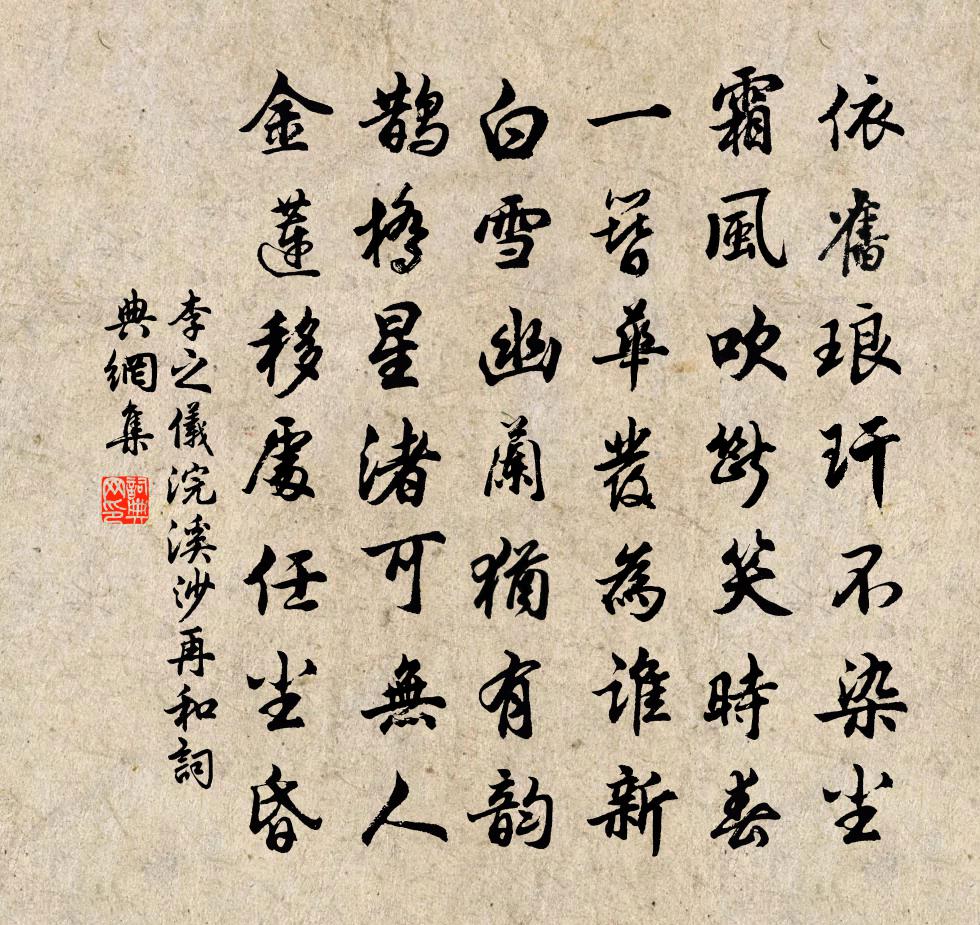 依舊琅玕不染尘
霜風吹斷笑時春
一簪華發為誰新
白雪幽蘭猶有韵
鵲橋星渚可無人
金蓮移處任尘昏
李之儀浣溪沙再和詞
典網集
詞典网印